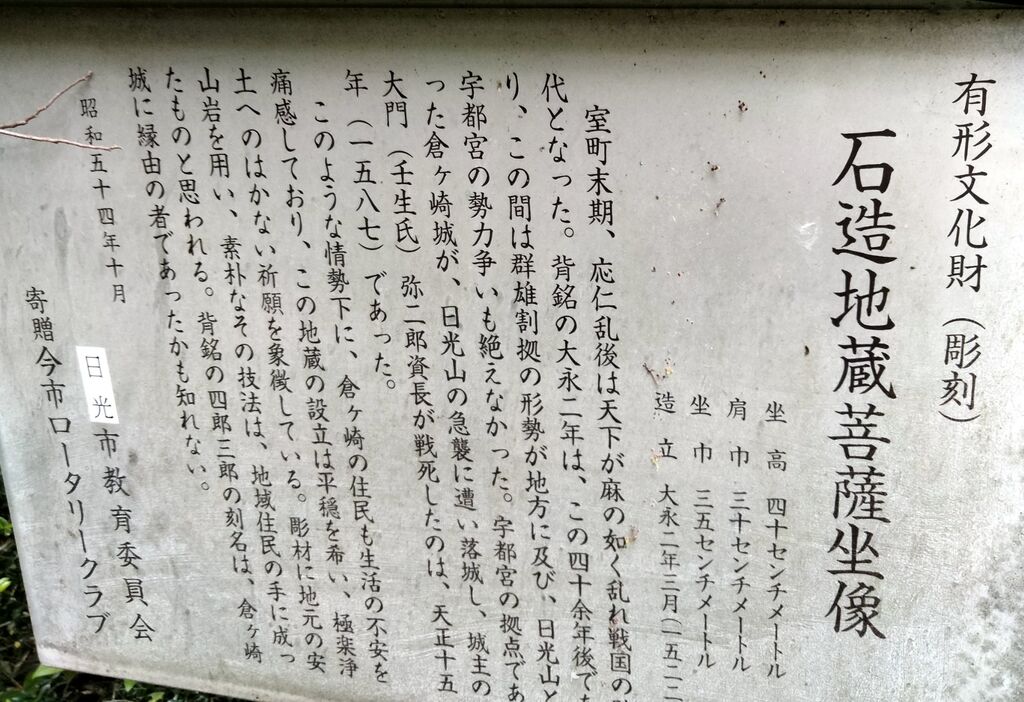 有形文化財（彫刻）
石造地蔵菩薩坐像
坐高 四十センチメートル
肩巾 三十センチメートル
坐巾 三五センチメートル
造立 大永二年三月（一五二二
室町末期、応仁乱後は天下が麻の如く乱れ戦国の
代となった。背銘の大永二年は、この四十余年後で
り、この間は群雄割拠の形勢が地方に及び、日光山と
宇都宮の勢力争いも絶えなかった。宇都宮の拠点であ
った倉ヶ崎城が、日光山の急襲に遭い落城し、城主の
大門（壬生氏）弥二郎資長が戦死したのは、天正十五
年（一五八七）であった。
このような情勢下に、倉ヶ崎の住民も生活の不安を
痛感しており、この地蔵の設立は平穏を希い、極楽浄
土へのはかない祈願を象徴している。彫材に地元の安
山岩を用い、素朴なその技法は、地域住民の手に成っ
たものと思われる。背銘の四郎三郎の刻名は、倉ヶ崎
城に縁由の者であったかも知れない。
昭和五十四年十月
日光市教育委員会
寄贈 今市ロータリークラブ